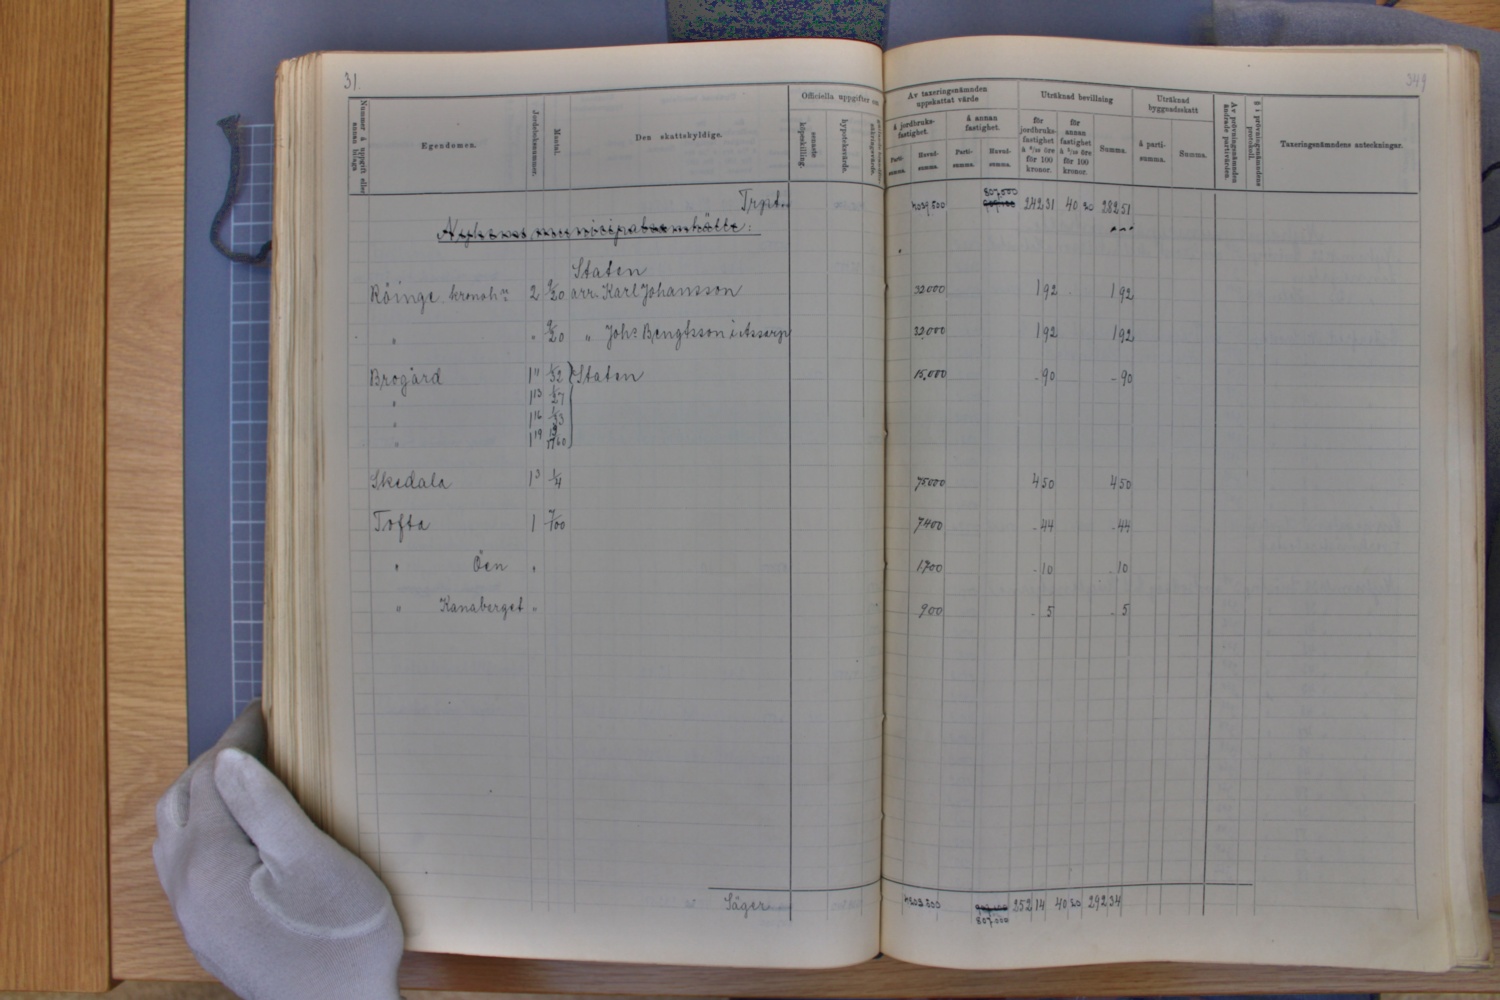 31.
349
Nummer å uppgift eller annan bilaga
Egendomen.
Jordeboksnummer.
Mantal.
Den skattskyldige.
Officiella uppgifter om
senaste köpeskilling.
hypoteksvärde.
Av taxeringsnämnden uppskattat värde
å jordbruksfastighet.
Partisumma.
Huvudsumma.
å annan fastighet.
Partisumma.
Huvudsumma.
Uträknad bevillning
för jordbruksfastighet à 6/10 öre för 100 kronor.
för annan fastighet à 5/10 öre för 100 kronor.
Summa.
Uträknad byggnadsskatt
å partisumma.
Summa.
Av prövningsnämnden ändrade partivärden.
§ i prövningsnämndens protokoll.
Taxeringsnämndens anteckningar.
Trpt. 4039,500 807,000 242,31 40 20 282 51
Staten
Röinge kronoh:n 2 9/20 arr. Karl Johansson 32000 1 92 1 92
" " 9/20 " Joh: Bengtsson i Assarp 32000 1 92 1 92
Brogård 1 11 1/32 Staten 15,000 - 90 - 90
" 1 13 1/27
" 1 16 1/53
" 1 19
Skedala 1 3 1/4 75000 4 50 4 50
Tofta 1 7/100 7400 - 44 - 44
" Öen " 1700 - 10 - 10
" Kanaberget " 900 - 5 - 5
Säger 4203,500 807,000 252 14 40 20 292 34